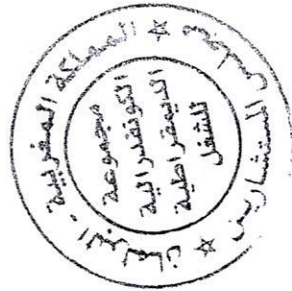 المملكة المغربية - البرلمان
مجلس المستشارين
مجموعة
الكونفدرالية
الديمقراطية
للشغل